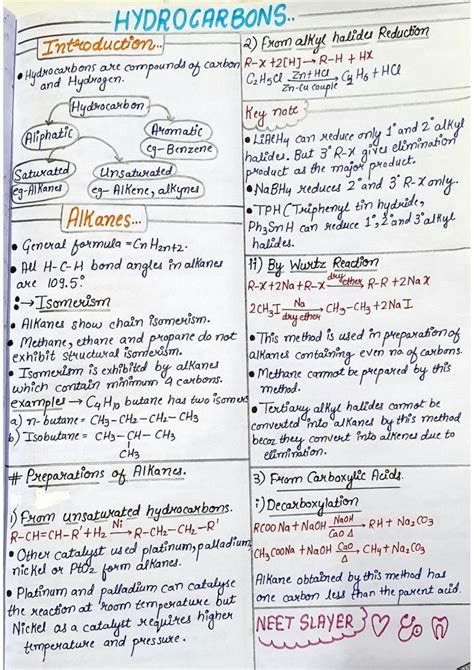 HYDROCARBONS..
Introduction...
• Hydrocarbons are compounds of carbon
and Hydrogen.
Hydrocarbon
Aliphatic
Aromatic
eg-Benzene
Saturated
eg-Alkanes
Unsaturated
eg-Alkene, alkynes
Alkanes...
• General formula = CnH2n+2.
• All H-C-H bond angles in alkanes
are 109.5°
:→ Isomerism
• Alkanes show chain isomerism.
• Methane, ethane and propane do not
exhibit structural isomerism.
• Isomerism is exhibited by alkanes
which contain minimum 4 carbons.
examples → C4H10 butane has two isomers
a) n-butane = CH3-CH2-CH2-CH3
b) Isobutane = CH3-CH-CH3
CH3
# Preparations of Alkanes.
1) From unsaturated hydrocarbons.
R-CH=CH-R'+H2 Ni→ R-CH2-CH2-R'
• Other catalyst used platinum, palladium
nickel or PtO2 form alkanes.
• Platinum and palladium can catalyse
the reaction at room temperature but
Nickel as a catalyst requires higher
temperature and pressure.
2) From alkyl halides Reduction
R-X+2[H]→ R-H + HX
C2H5Cl Zn+HCl→ C2H6 + HCl
Zn-Cu couple
Key note
• LiAlH4 can reduce only 1° and 2° alkyl
halides. But 3° R-X gives elimination
product as the major product.
• NaBH4 reduces 2° and 3° R-X only.
• TPH (Triphenyl tin hydride,
Ph3SnH can reduce 1°, 2° and 3° alkyl
halides.
ii) By Wurtz Reaction
R-X+2Na+R-X dry ether→ R-R+2NaX
2CH3I Na→ CH3-CH3 + 2NaI
dry ether
• This method is used in preparation of
alkanes containing even no. of carbons.
• Methane cannot be prepared by this
method.
• Tertiary alkyl halides cannot be
converted into alkanes by this method
becoz they convert into alkenes due to
elimination.
3) From Carboxylic Acids.
i) Decarboxylation
RCOONa+NaOH NaOH→ RH + Na2CO3
CaO Δ
CH3COONa + NaOH CaO→ CH4+Na2CO3
Δ
Alkane obtained by this method has
one carbon less than the parent acid.
NEET SLAYER